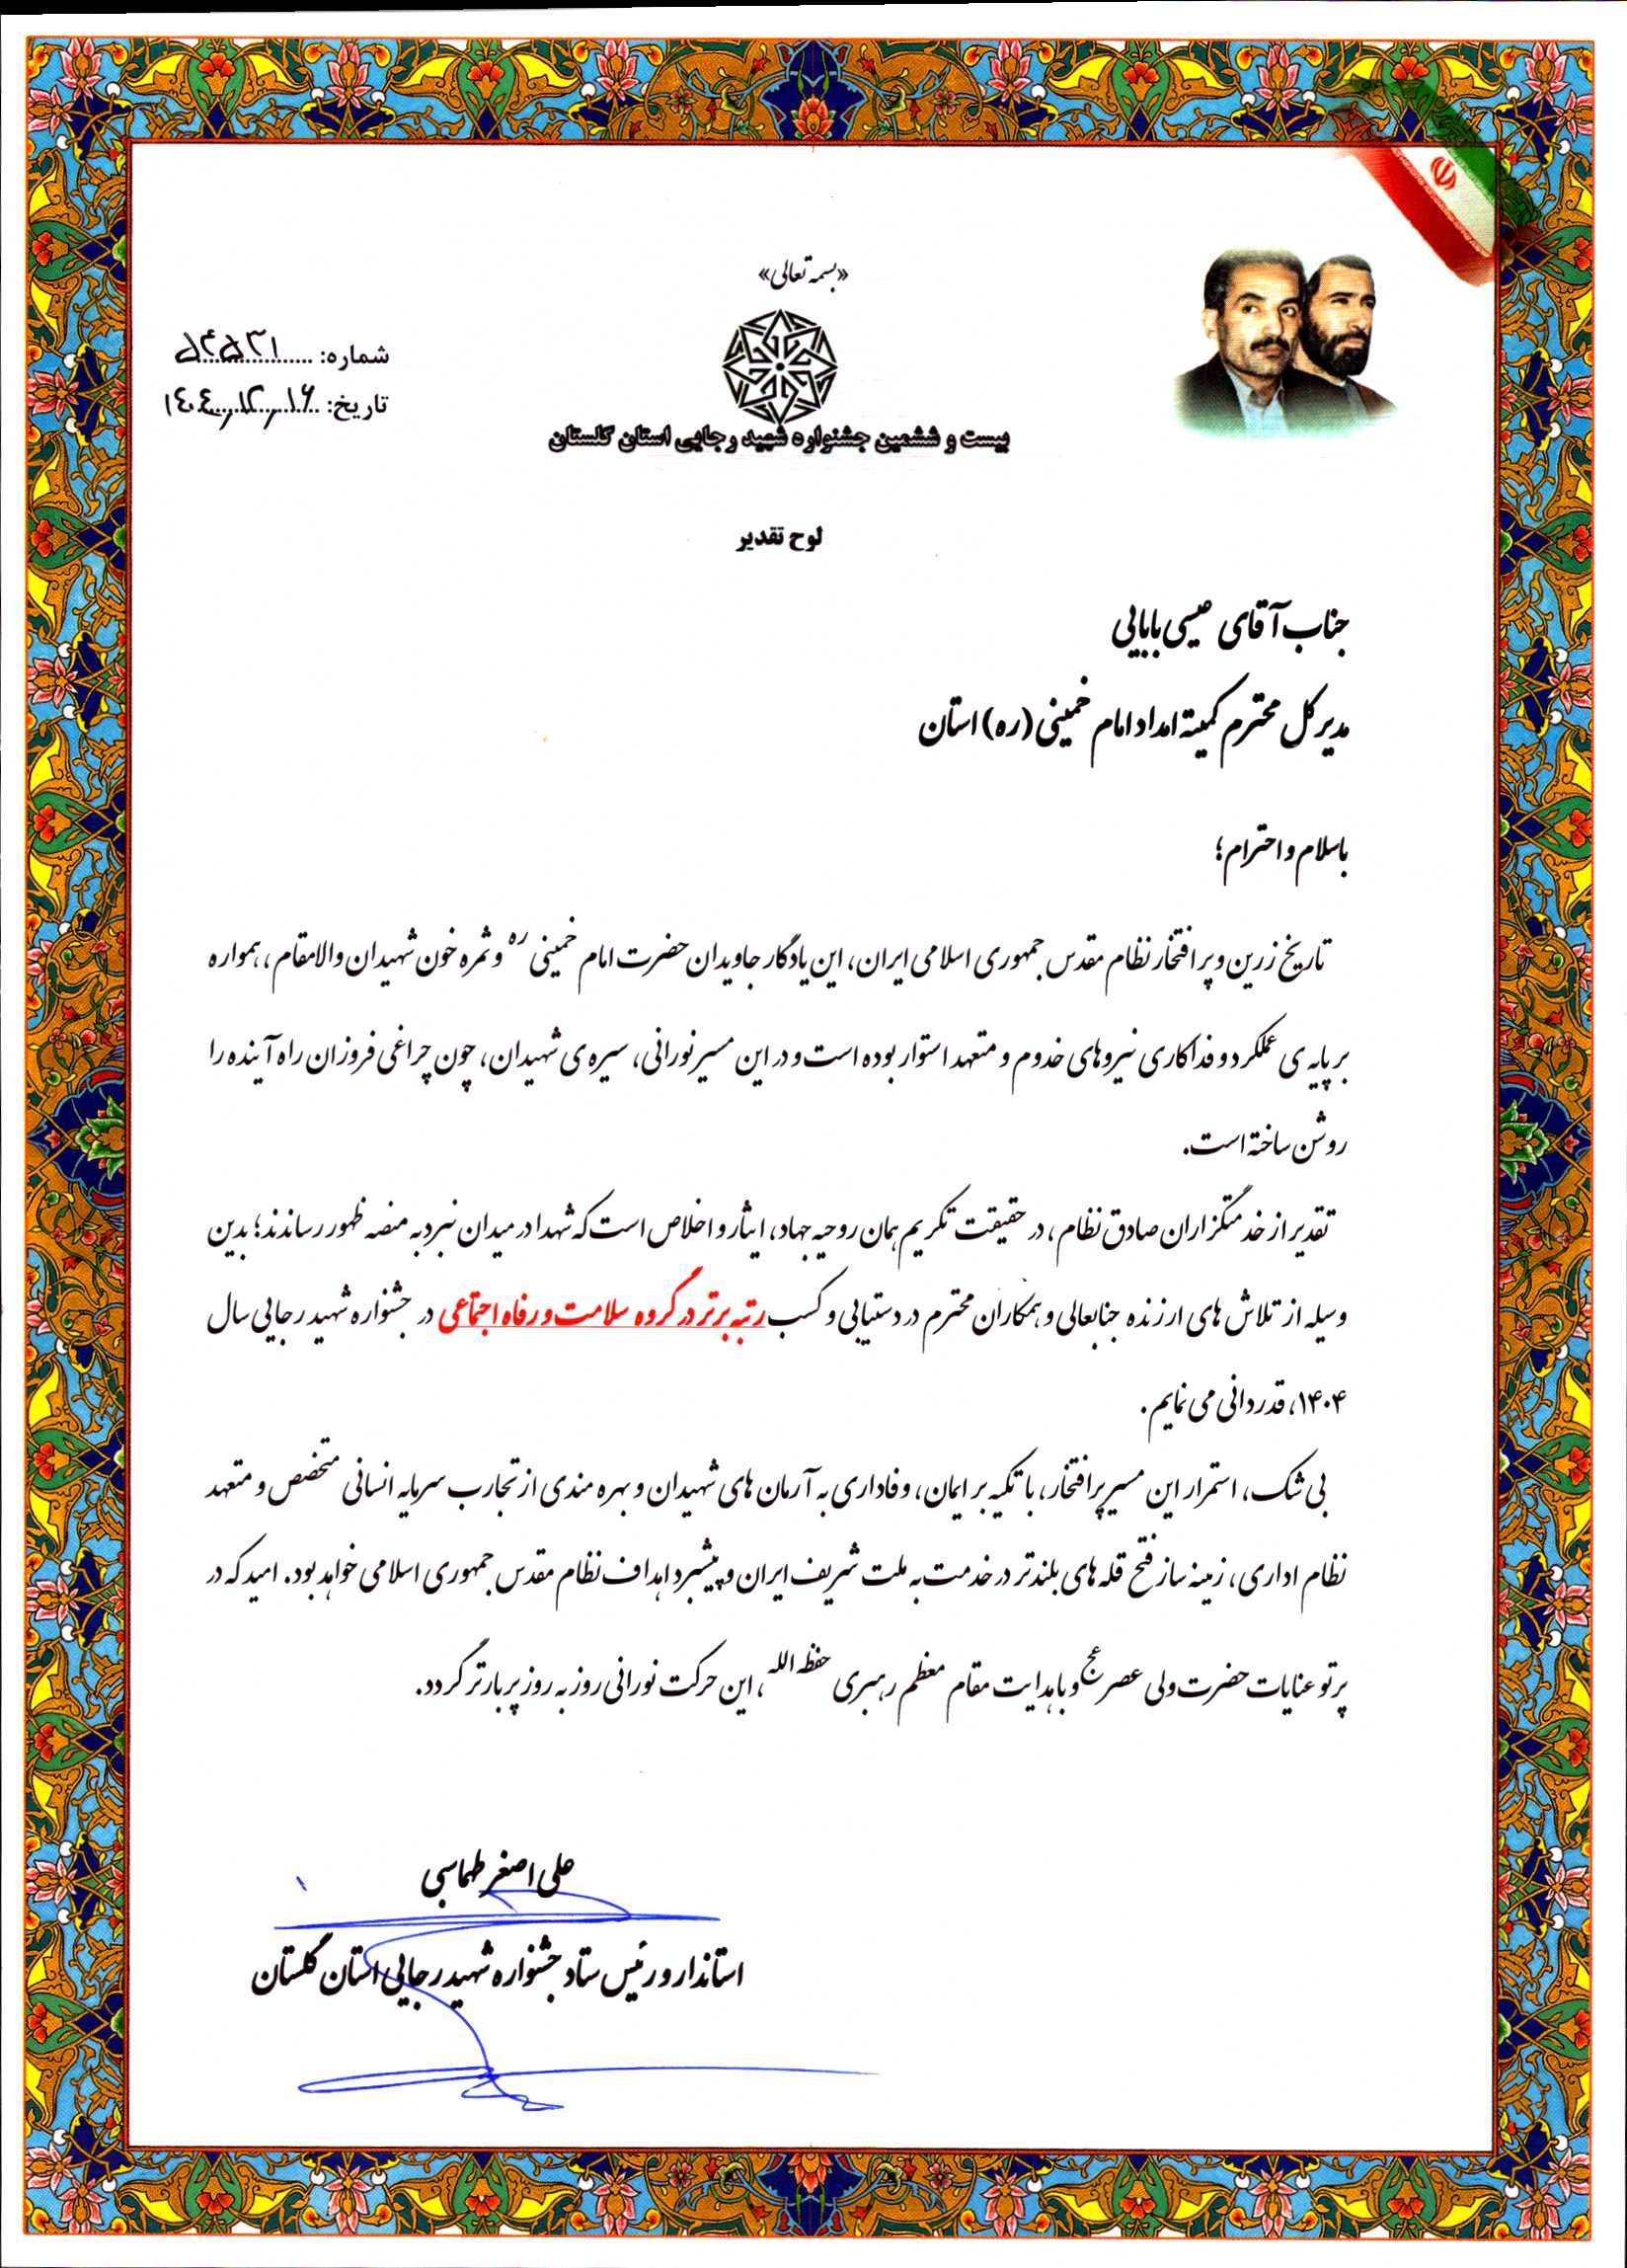 «بسمه تعالی»
شماره: ۵۴۵۳۱
تاریخ: ۱۴۰۴/۱۲/۱۶
بیست و ششمین جشنواره شهید رجایی استان گلستان
لوح تقدیر
جناب آقای عیسی بابایی
مدیرکل محترم کمیته امداد امام خمینی (ره) استان
باسلام و احترام؛
تاریخ زرین و پر افتخار نظام مقدس جمهوری اسلامی ایران، این یادگار جاویدان حضرت امام خمینی ره و ثمره خون شهیدان والامقام، همواره
بر پایه ی عملکرد و فداکاری نیروهای خدوم و متعهد استوار بوده است و در این مسیر نورانی، سیره ی شهیدان، چون چراغی فروزان راه آینده را
روشن ساخته است.
تقدیر از خدمتگزاران صادق نظام، در حقیقت تکریم همان روحیه جهاد، ایثار و اخلاص است که شهدا در میدان نبرد به منصه ظهور رساندند؛ بدین
وسیله از تلاش های ارزنده جنابعالی و همکاران محترم در دستیابی و کسب رتبه برتر در گروه سلامت و رفاه اجتماعی در جشنواره شهید رجایی سال
۱۴۰۴، قدردانی می نمایم.
بی شک، استمرار این مسیر پرافتخار، با تکیه بر ایمان، وفاداری به آرمان های شهیدان و بهره مندی از تجارب سرمایه انسانی متخصص و متعهد
نظام اداری، زمینه ساز فتح قله های بلندتر در خدمت به ملت شریف ایران و پیشبرد اهداف نظام مقدس جمهوری اسلامی خواهد بود. امید که در
پرتو عنایات حضرت ولی عصر عج و با هدایت مقام معظم رهبری حفظه الله، این حرکت نورانی روز به روز پربارتر گردد.
علی اصغر طهماسبی
استاندار و رئیس ستاد جشنواره شهید رجایی استان گلستان